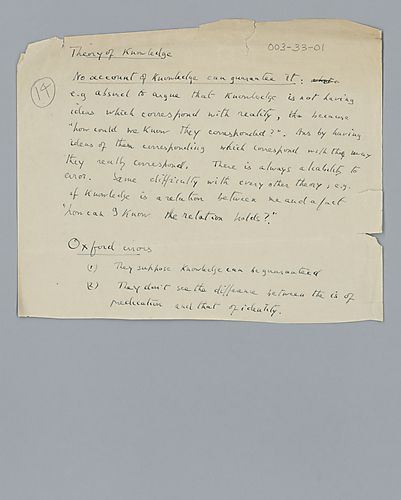 Theory of Knowledge
003-33-01
14
No account of knowledge can guarantee it:
e.g. absurd to argue that knowledge is not having
ideas which correspond with reality, because
"how could we know they corresponded?". Ans by having
ideas of them corresponding which correspond with the way
they really correspond. There is always a liability to
error. Same difficulty with every other theory, e.g.
if knowledge is a relation between me and a fact
"how can I know the relation holds?"
Oxford errors
(1) They suppose knowledge can be guaranteed
(2) They don't see the difference between the is of
predication and that of identity.